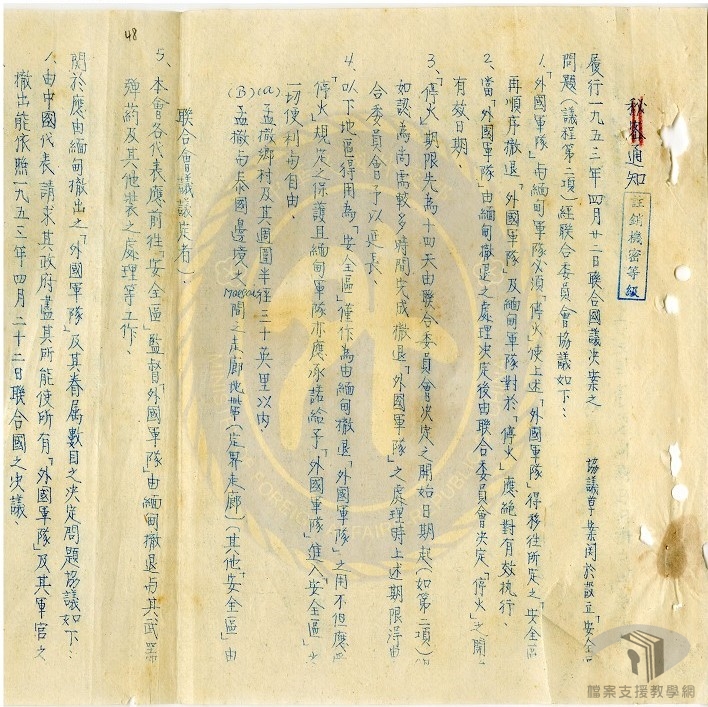 48
秘密通知
註銷機密等級
協議草案關於設立「安全區
問題(議程第二項)經聯合委員會協議如下:
履行一九五三年四月廿二日聯合國議決案之
1.「外國軍隊」與緬甸軍隊必須「停火」使上述「外國軍隊」得移往所定之「安全區
再順序撤退「外國軍隊」及緬甸軍隊對於「停火」應絕對有效執行、
2、當「外國軍隊」由緬甸撤退之處理決定後由聯合委員會決定「停火」之開
有效日期
3、「停火」期限先為十四天由聯合委員會決定之開始日期起(如第二項)
如認為尚需較多時間完成撤退「外國軍隊」之處理時上述期限得由
合委員會予以延長、
4、以下地區得用為「安全區」僅作為由緬甸撤退「外國軍隊」之用不但應
「停火」規定之保護且緬甸軍隊亦應承諾給予「外國軍隊」進入「安全區」之
一切便利與自由、
(a)孟撤鄉村及其週圍半徑三十英里以內
(B)孟撤與泰國邊境之間之走廊地帶(定界走廊)(其他「安全區」由
聯合會議議定者)、
5、本會各代表應前往「安全區」監督「外國軍隊」由緬甸撤退與其武器
彈葯及其他裝之處理等工作、
關於應由緬甸撤出之「外國軍隊」及其眷屬數目之決定問題協議如下:
1.由中國代表請求其政府盡其所能使所有「外國軍隊」及其軍官之
撤出能依照一九五三年四月二十二日聯合國之決議、
檔案支援教學網